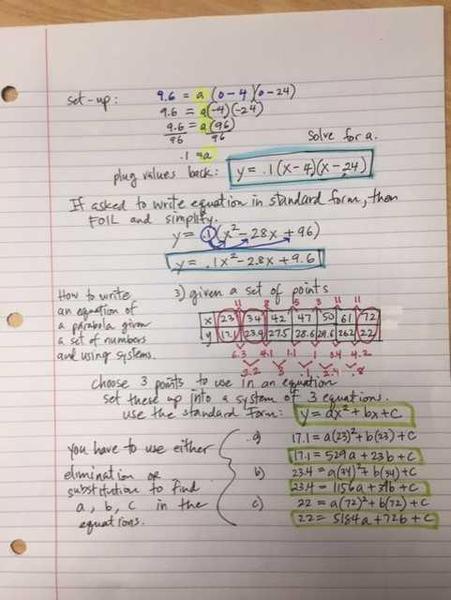 set-up: 9.6 = a (0-4)(0-24)
9.6 = a(-4)(-24)
9.6 = a(96)
96 96
solve for a.
.1 = a
plug values back: y = .1(x-4)(x-24)
If asked to write equation in standard form, then
FOIL and simplify.
y = .1(x²-28x+96)
y = .1x²-2.8x+9.6
How to write
an equation of
a parabola given
a set of numbers
and using systems.
3) given a set of points
11 8 5 3 11 11
x 23 34 42 47 50 61 72
y 17.1 23.4 27.5 28.6 29.6 26.2 22
6.3 4.1 1.1 1 3.4 4.2
2.2 3 .1 2.4 .8
choose 3 points to use in an equation
set these up into a system of 3 equations.
use the standard form: y = ax² + bx + c
you have to use either
elimination or
substitution to find
a, b, c in the
equations.
a) 17.1 = a(23)² + b(23) + c
17.1 = 529a + 23b + c
b) 23.4 = a(34)² + b(34) + c
23.4 = 1156a + 34b + c
c) 22 = a(72)² + b(72) + c
22 = 5184a + 72b + c